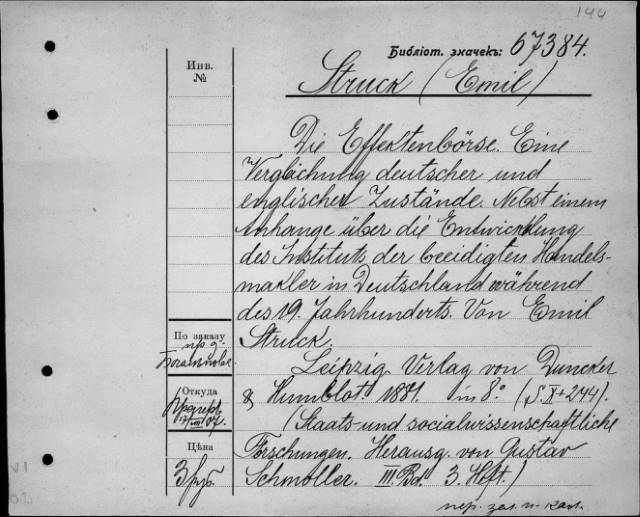 144
Библіот. значекъ: 67384.
Инв.
№
Struck (Emil)
Die Effektenbörse. Eine
Vergleichung deutscher und
englischer Zustände. Nebst einem
Anhange über die Entwicklung
des Instituts der beeidigten Handels-
makler in Deutschland während
des 19. Jahrhunderts. Von Emil
Struck.
По заказу
пр. д.
Leipzig Verlag von Duncker
Откуда
& Humblot. 1881. in 8.° (S. X+244).
17/VIII 07.
(Staats- und socialwissenschaftliche
Цѣна
Forschungen. Herausg. von Gustav
3 руб.
Schmoller. III. Bd. 3. Heft.)